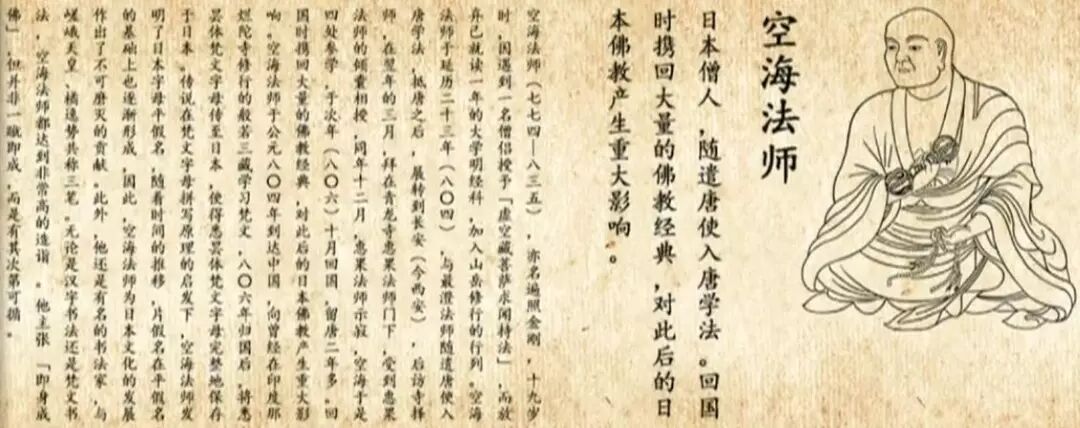 空海法师
日本僧人,随遣唐使入唐学法。回国
时携回大量的佛教经典,对此后的日
本佛教产生重大影响。
空海法师(七七四—八三五),亦名遍照金刚,十九岁
时,因遇到一名僧侣授予「虚空藏菩萨求闻持法」,而放
弃已就读一年的大学明经科,加入山岳修行的行列。空海
法师于延历二十三年(八〇四),与最澄法师随遣唐使入
唐学法,抵唐之后,展转到长安(今西安),后访寺择
师,在翌年的三月,拜在青龙寺惠果法师门下,受到惠果
法师的倾囊相授,同年十二月,惠果法师示寂,空海于是
四处参学,于次年(八〇六)十月回国,留唐二年多。回
国时携回大量的佛教经典,对此后的日本佛教产生重大影
响。空海法师于公元八〇四年到达中国,向曾经在印度那
烂陀寺修行的般若三藏学习梵文,八〇六年归国后,将悉
昙体梵文字母传至日本,使得悉昙体梵文字母完整地保存
于日本。传说在梵文字母拼写原理的启发下,空海法师发
明了日本字母平假名,随着时间的推移,片假名在平假名
的基础上也逐渐形成,因此,空海法师为日本文化的发展
作出了不可磨灭的贡献。此外,他还是有名的书法家,与
嵯峨天皇、橘逸势共称三笔。无论是汉字书法还是梵文书
法,空海法师都达到非常高的造诣。他主张「即身成
佛」,但并非一蹴即成,而是有其次第可循。